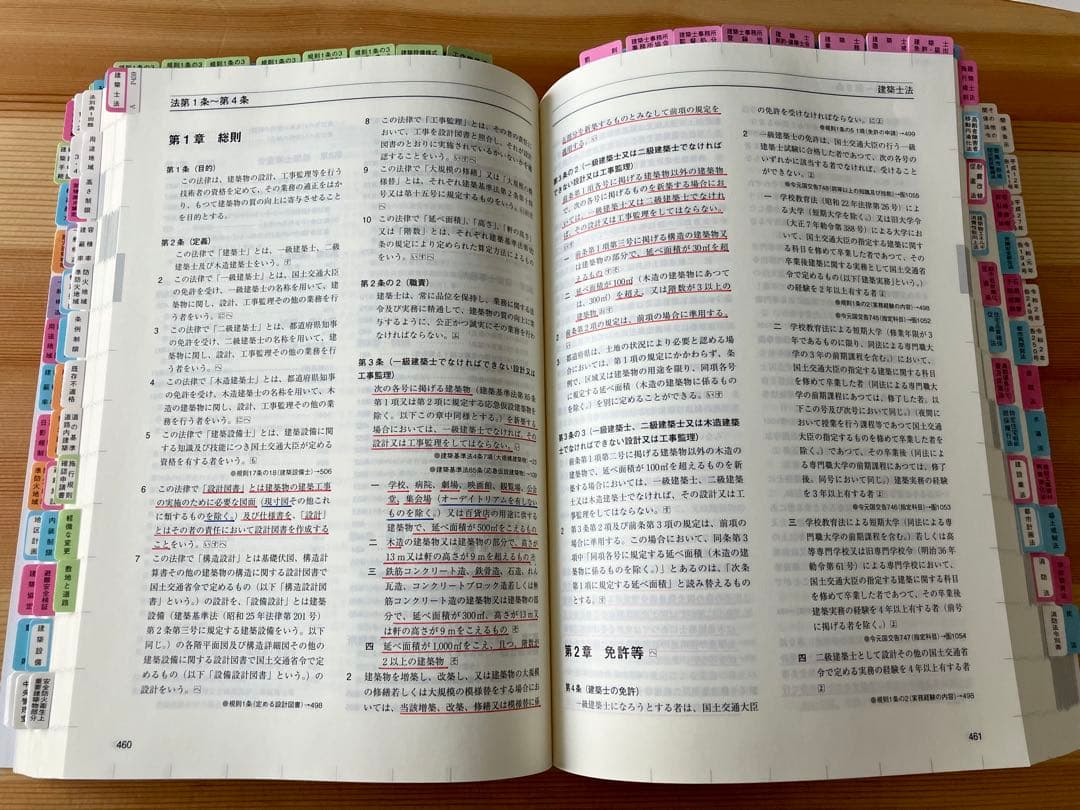 法第1条〜第4条
第1章 総則
第1条(目的)
この法律は、建築物の設計、工事監理等を行う
技術者の資格を定めて、その業務の適正をはか
り、もつて建築物の質の向上に寄与させること
を目的とする。
第2条(定義)
この法律で「建築士」とは、一級建築士、二級
建築士及び木造建築士をいう。
2 この法律で「一級建築士」とは、国土交通大臣
の免許を受け、一級建築士の名称を用いて、建
築物に関し、設計、工事監理その他の業務を行
う者をいう。
3 この法律で「二級建築士」とは、都道府県知事
の免許を受け、二級建築士の名称を用いて、建
築物に関し、設計、工事監理その他の業務を行
う者をいう。
4 この法律で「木造建築士」とは、都道府県知事
の免許を受け、木造建築士の名称を用いて、木
造の建築物に関し、設計、工事監理その他の業
務を行う者をいう。
5 この法律で「建築設備士」とは、建築設備に関
する知識及び技能につき国土交通大臣が定める
資格を有する者をいう。
●規則17条の18(建築設備士)→506
6 この法律で「設計図書」とは建築物の建築工事
の実施のために必要な図面(現寸図その他これ
に類するものを除く。)及び仕様書を、「設計」
とはその者の責任において設計図書を作成する
ことをいう。
7 この法律で「構造設計」とは基礎伏図、構造計
算書その他の建築物の構造に関する設計図書で
国土交通省令で定めるもの(以下「構造設計図
書」という。)の設計を、「設備設計」とは建築
設備(建築基準法(昭和25年法律第201号)
第2条第三号に規定する建築設備をいう。以下
同じ。)の各階平面図及び構造詳細図その他の
建築設備に関する設計図書で国土交通省令で定
めるもの(以下「設備設計図書」という。)の
設計をいう。
●規則1条(定める設計図書)→498
8 この法律で「工事監理」とは、その者の責任に
おいて、工事を設計図書と照合し、それが設計
図書のとおりに実施されているかいないかを確
認することをいう。
9 この法律で「大規模の修繕」又は「大規模の模
様替」とは、それぞれ建築基準法第2条第十四
号又は第十五号に規定するものをいう。
10 この法律で「延べ面積」、「高さ」、「軒の高さ」
又は「階数」とは、それぞれ建築基準法第92
条の規定により定められた算定方法によるもの
をいう。
第2条の2(職責)
建築士は、常に品位を保持し、業務に関する法
令及び実務に精通して、建築物の質の向上に寄
与するように、公正かつ誠実にその業務を行わ
なければならない。
第3条(一級建築士でなければできない設計又は
工事監理)
次の各号に掲げる建築物(建築基準法第85条
第1項又は第2項に規定する応急仮設建築物を
除く。以下この章中同様とする。)を新築する
場合においては、一級建築士でなければ、その
設計又は工事監理をしてはならない。
●建築基準法4条7項(大規模建築物)→23
●建築基準法85条(応急仮設建築物)→139
一 学校、病院、劇場、映画館、観覧場、公会
堂、集会場(オーデイトリアムを有しない
ものを除く。)又は百貨店の用途に供する
建築物で、延べ面積が500㎡をこえるもの
二 木造の建築物又は建築物の部分で、高さが
13m又は軒の高さが9mを超えるもの
三 鉄筋コンクリート造、鉄骨造、石造、れん
瓦造、コンクリートブロック造若しくは無
筋コンクリート造の建築物又は建築物の部
分で、延べ面積が300㎡、高さが13m又
は軒の高さが9mをこえるもの
四 延べ面積が1,000㎡をこえ、且つ、階数が
2以上の建築物
2 建築物を増築し、改築し、又は建築物の大規模
の修繕若しくは大規模の模様替をする場合にお
いては、当該増築、改築、修繕又は模様替に係
460
建築士法
る部分を新築するものとみなして前項の規定を
適用する。
第3条の2(一級建築士又は二級建築士でなければ
できない設計又は工事監理)
前条第1項各号に掲げる建築物以外の建築物
で、次の各号に掲げるものを新築する場合にお
いては、一級建築士又は二級建築士でなけれ
ば、その設計又は工事監理をしてはならない。
一 前条第1項第三号に掲げる構造の建築物又
は建築物の部分で、延べ面積が30㎡を超
えるもの
二 延べ面積が100㎡(木造の建築物にあつて
は、300㎡)を超え、又は階数が3以上の
建築物
2 前条第2項の規定は、前項の場合に準用する。
3 都道府県は、土地の状況により必要と認める場
合においては、第1項の規定にかかわらず、条
例で、区域又は建築物の用途を限り、同項各号
に規定する延べ面積(木造の建築物に係るもの
に限る。)を別に定めることができる。
第3条の3(一級建築士、二級建築士又は木造建築
士でなければできない設計又は工事監理)
前条第1項第二号に掲げる建築物以外の木造の
建築物で、延べ面積が100㎡を超えるものを新
築する場合においては、一級建築士、二級建築
士又は木造建築士でなければ、その設計又は工
事監理をしてはならない。
2 第3条第2項及び前条第3項の規定は、前項の
場合に準用する。この場合において、同条第3
項中「同項各号に規定する延べ面積(木造の建
築物に係るものに限る。)」とあるのは、「次条
第1項に規定する延べ面積」と読み替えるもの
とする。
第2章 免許等
第4条(建築士の免許)
一級建築士になろうとする者は、国土交通大臣
の免許を受けなければならない。
●規則1条の5 1項(免許の申請)→499
2 一級建築士の免許は、国土交通大臣の行う一級
建築士試験に合格した者であつて、次の各号の
いずれかに該当する者でなければ、受けること
ができない。
一 学校教育法(昭和22年法律第26号)によ
る大学(短期大学を除く。)又は旧大学令
(大正7年勅令第388号)による大学にお
いて、国土交通大臣の指定する建築に関す
る科目を修めて卒業した者であつて、その
卒業後建築に関する実務として国土交通省
令で定めるもの(以下「建築実務」という。)
の経験を2年以上有する者
●規則1条の2(実務経験の内容)→498
●令元国交告745(指定科目)→告1052
二 学校教育法による短期大学(修業年限が3
年であるものに限り、同法による専門職大
学の3年の前期課程を含む。)において、
国土交通大臣の指定する建築に関する科目
を修めて卒業した者(同法による専門職大
学の前期課程にあつては、修了した者。以
下この号及び次号において同じ。)(夜間に
おいて授業を行う課程等であつて国土交通
大臣の指定するものを修めて卒業した者を
除く。)であつて、その卒業後(同法によ
る専門職大学の前期課程にあつては、修了
後。同号において同じ。)建築実務の経験
を3年以上有する者
三 学校教育法による短期大学(同法による専
門職大学の前期課程を含む。)若しくは高
等専門学校又は旧専門学校令(明治36年
勅令第61号)による専門学校において、
国土交通大臣の指定する建築に関する科目
を修めて卒業した者であつて、その卒業後
建築実務の経験を4年以上有する者(前号
に掲げる者を除く。)
●令元国交告747(指定科目)→告1054
四 二級建築士として設計その他の国土交通省
令で定める実務の経験を4年以上有する者
●規則1条の2(実務経験の内容)→498
461
建築士法
用途地域
高さ制限
容積率
準防火地域
条例制限
既存不適格
日影規制
準防火地域
地区計画
内装制限
軽微な変更
敷地と道路
建築協定
避難安全検証
建築設備
都市計画法
消防法
建築業法